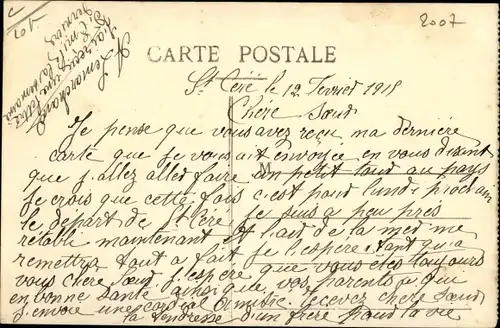 2007
CARTE POSTALE
St Céré le 12 Fevrier 1915
Chère Sœur
Je pense que vous avez reçu ma dernière
carte que je vous ait envoyée en vous disant
que j'allez aller faire un petit tour au pays
Je crois que cette fois c'est pour lundi prochain
le départ de St Céré je suis a peu près
rétabli maintenant et l'air de la mer me
remettra tout a fait je l'espere. Tant qu'a
vous chere sœur j'espère que vous etes toujours
en bonne santé ainsi que, vos parents a qui
j'envoie une cordial Amitié. recevez chere sœur
la tendresse d'un frère pour la vie
Lemarchand
une lettre